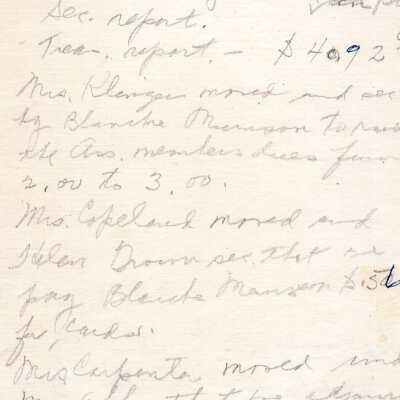 Sec. report.
Treas. report. - $ 40.92
Mrs. Klinger moved and sec
by Blanche Munson to raise
the Ass. members dues from
2.00 to 3.00.
Mrs. Copeland moved and
Helen Brown sec. that we
pay Blanche Munson $.56
for cards.
Mrs Carpenter moved and